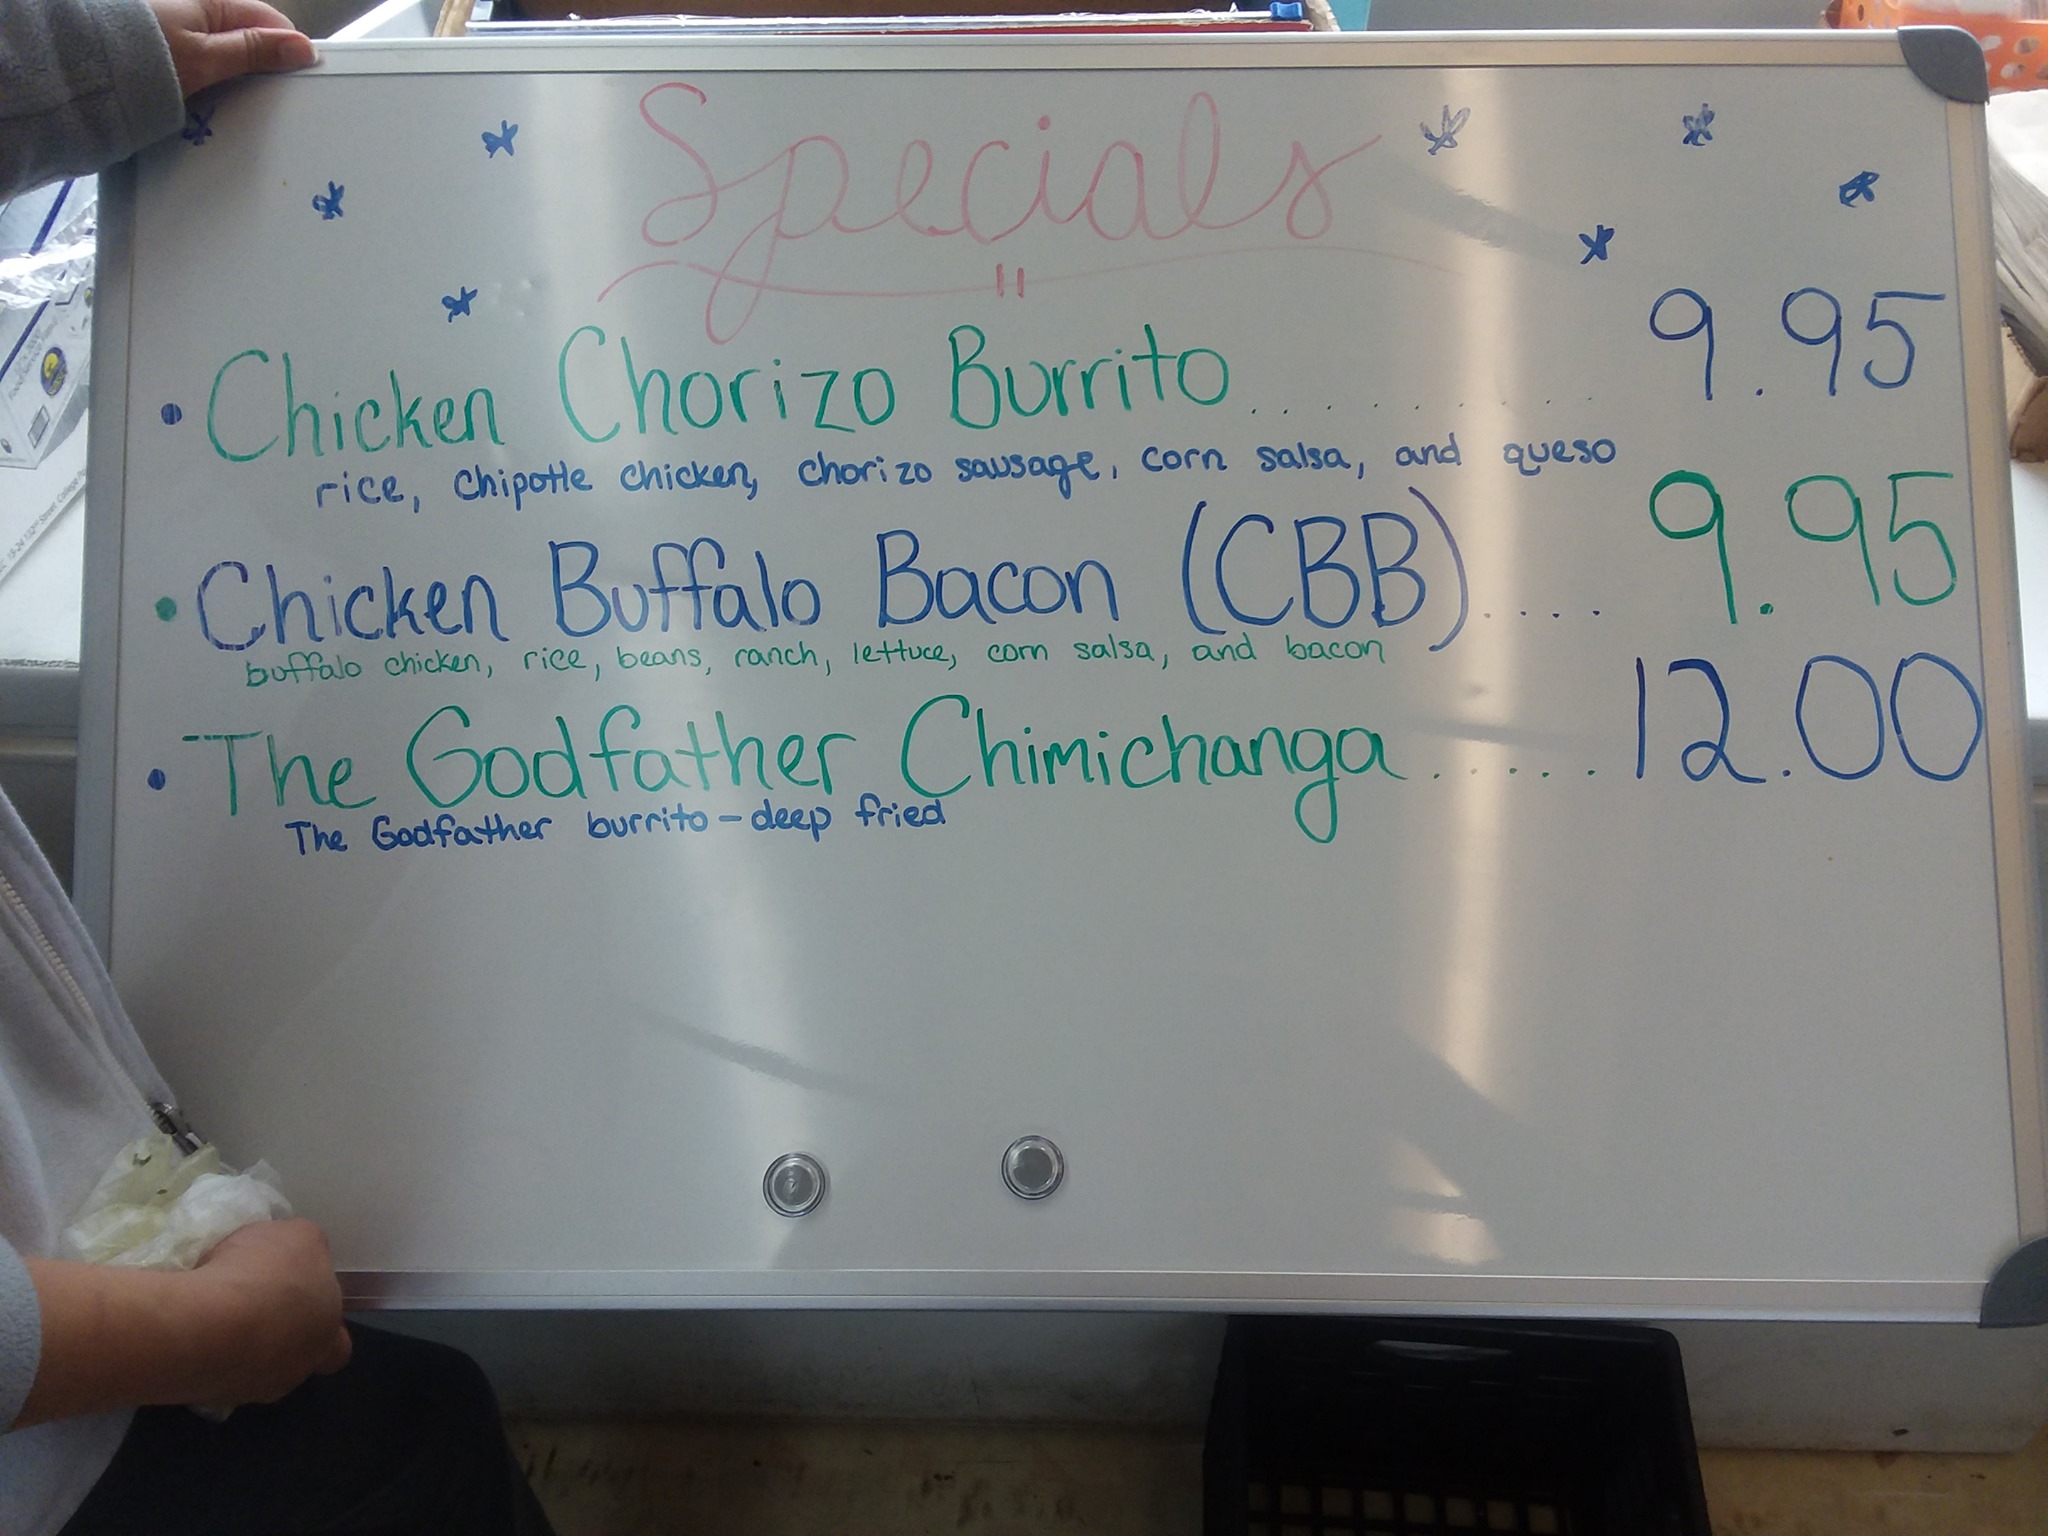 Specials
• Chicken Chorizo Burrito.......... 9.95
rice, chipotle chicken, chorizo sausage, corn salsa, and queso
• Chicken Buffalo Bacon (CBB).... 9.95
buffalo chicken, rice, beans, ranch, lettuce, corn salsa, and bacon
• The Godfather Chimichanga...... 12.00
The Godfather burrito - deep fried